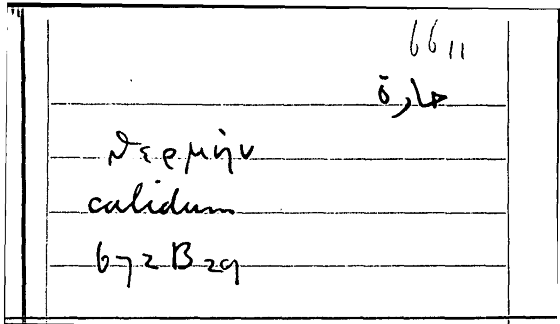 66 11
حارة
θερμὴν
calidum
672 B 29